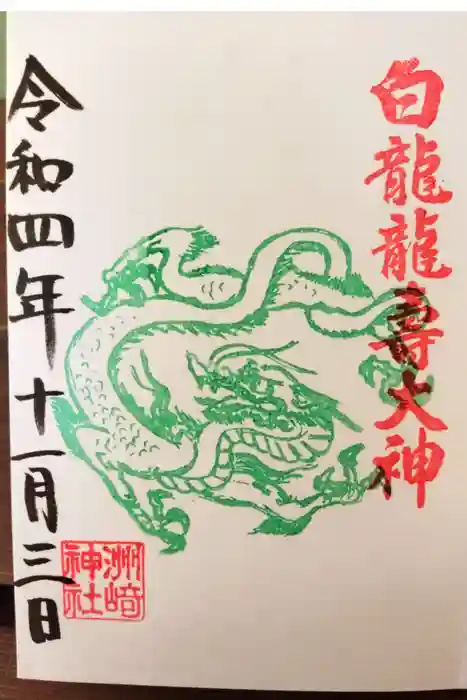 白龍龍壽大神
令和四年十一月三日
洲崎
神社